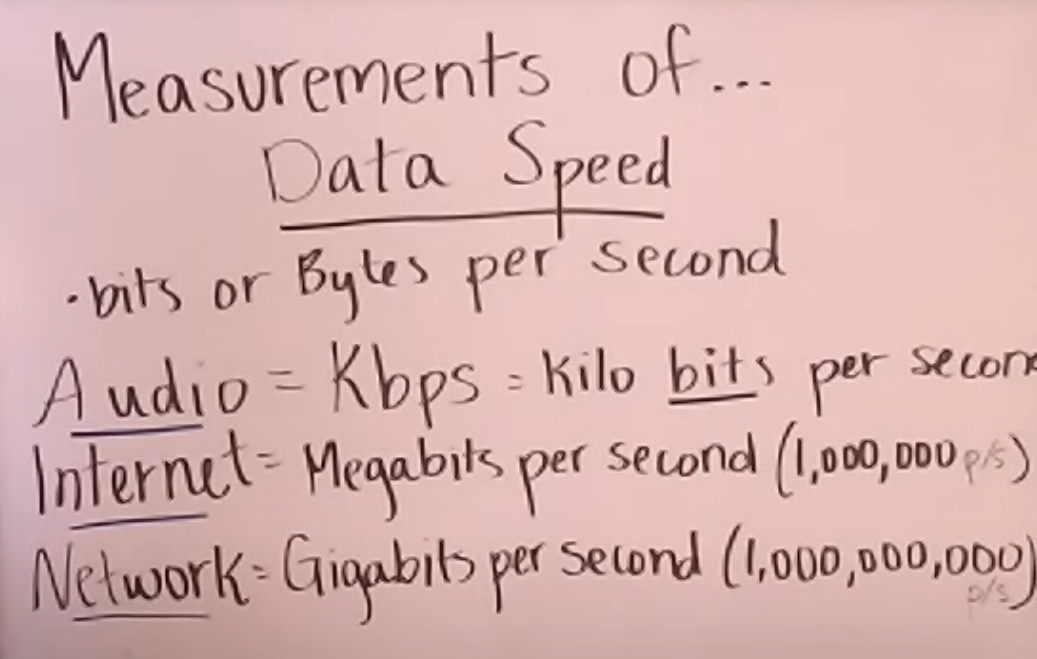 Measurements of...
Data Speed
·bits or Bytes per second
Audio = Kbps = Kilo bits per secon
Internet = Megabits per second (1,000,000 p/s)
Network = Gigabits per second (1,000,000,000)
p/s